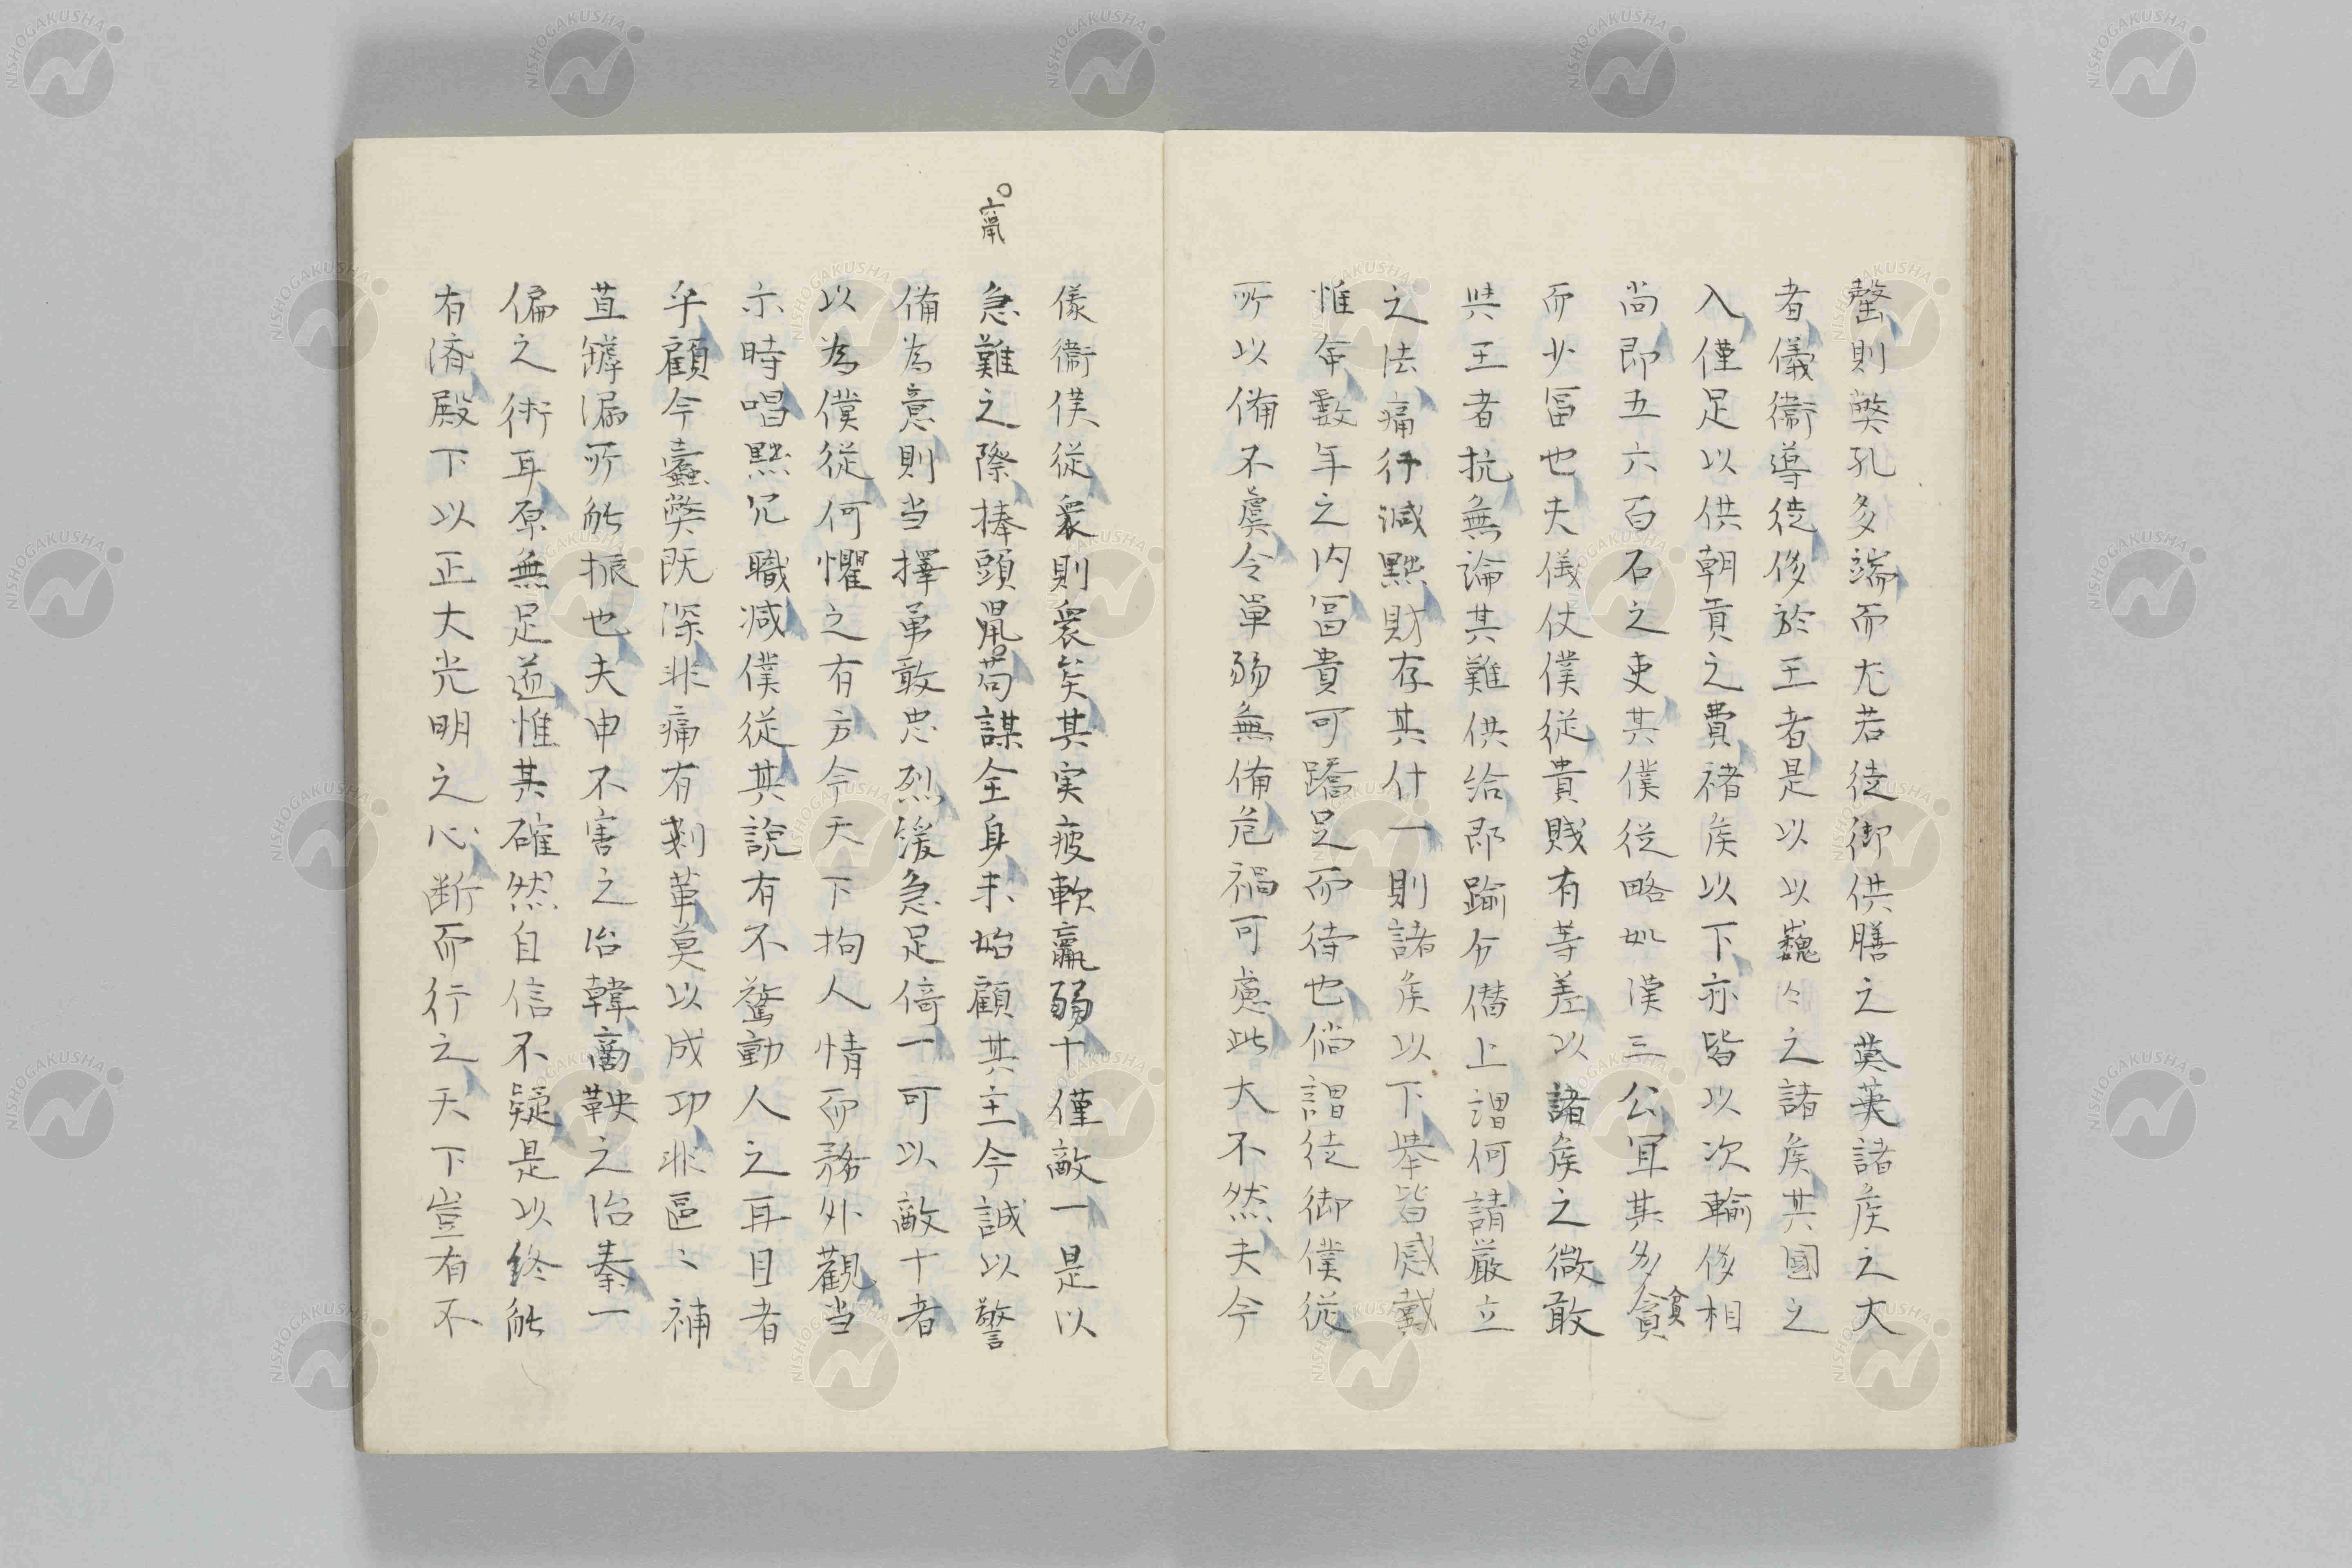 罄則獘孔多端而尤若徒御供膳之莫英諸矦之大
者儀衞導徒侈於王者是以以巍々之諸矦其國之
入僅足以供朝貢之費禇矦以下亦皆以次輸侈相
尚即五六百石之吏其僕從略如漢三公冝其多貪
貧
而少冨也夫儀仗僕從貴賎有等差以諸矦之微敢
與王者抗無論其難供给即踰分僭上謂何請厳立
之法痛行减黜財存其什一則諸矦以下舉皆感戴
惟年數年之内冨貴可蹻足而待也倘謂徒御僕從
所以俻不虞令單弱無俻危禍可慮此大不然夫今
儀衞僕従衆則衆矣其実疲軟羸弱十僅敵一是以
。竄
急難之際捧頭鼠。苟謀全身未始顧其主今誠以警
俻為意則当擇勇敢忠烈緩急足倚一可以敵十者
以為僕從何懼之有方今天下拘人情而務外觀当
示時唱黜冗職减僕從其説有不驚動人之耳目者
乎顧今蠹獘既深非痛有剗革莫以成功非區〻補
苴罅漏所能振也夫申不害之治韓商鞅之治秦一
偏之術耳原無足道惟其確然自信不疑是以終能
有済殿下以正大光明之心断而行之天下豈有不